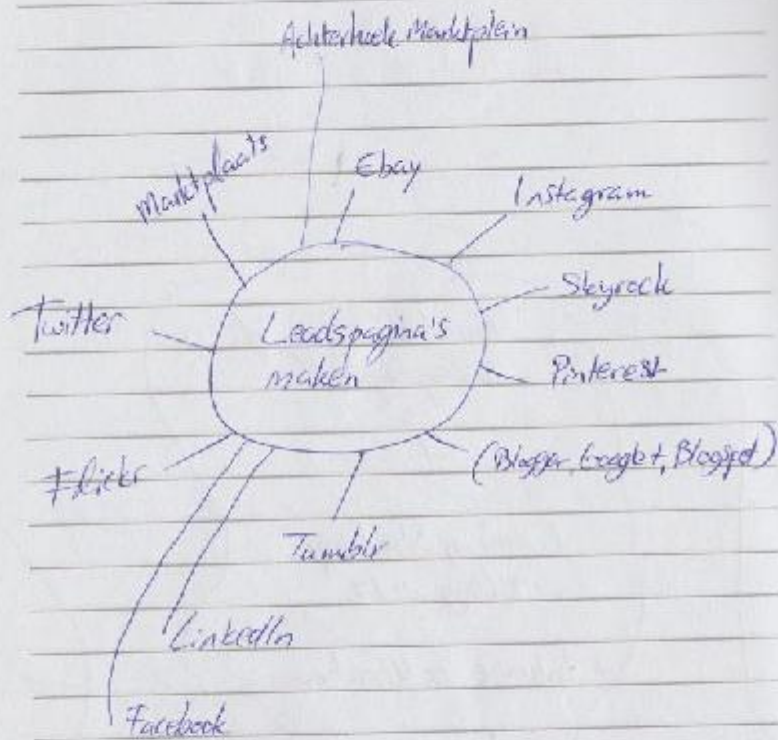 Achterhoek Marktplein
Marktplaats
Ebay
Instagram
Skyrock
Twitter
Leadspagina's
maken
Pinterest
Flickr
(Blogger, Google+, Blogspot)
Tumblr
LinkedIn
Facebook